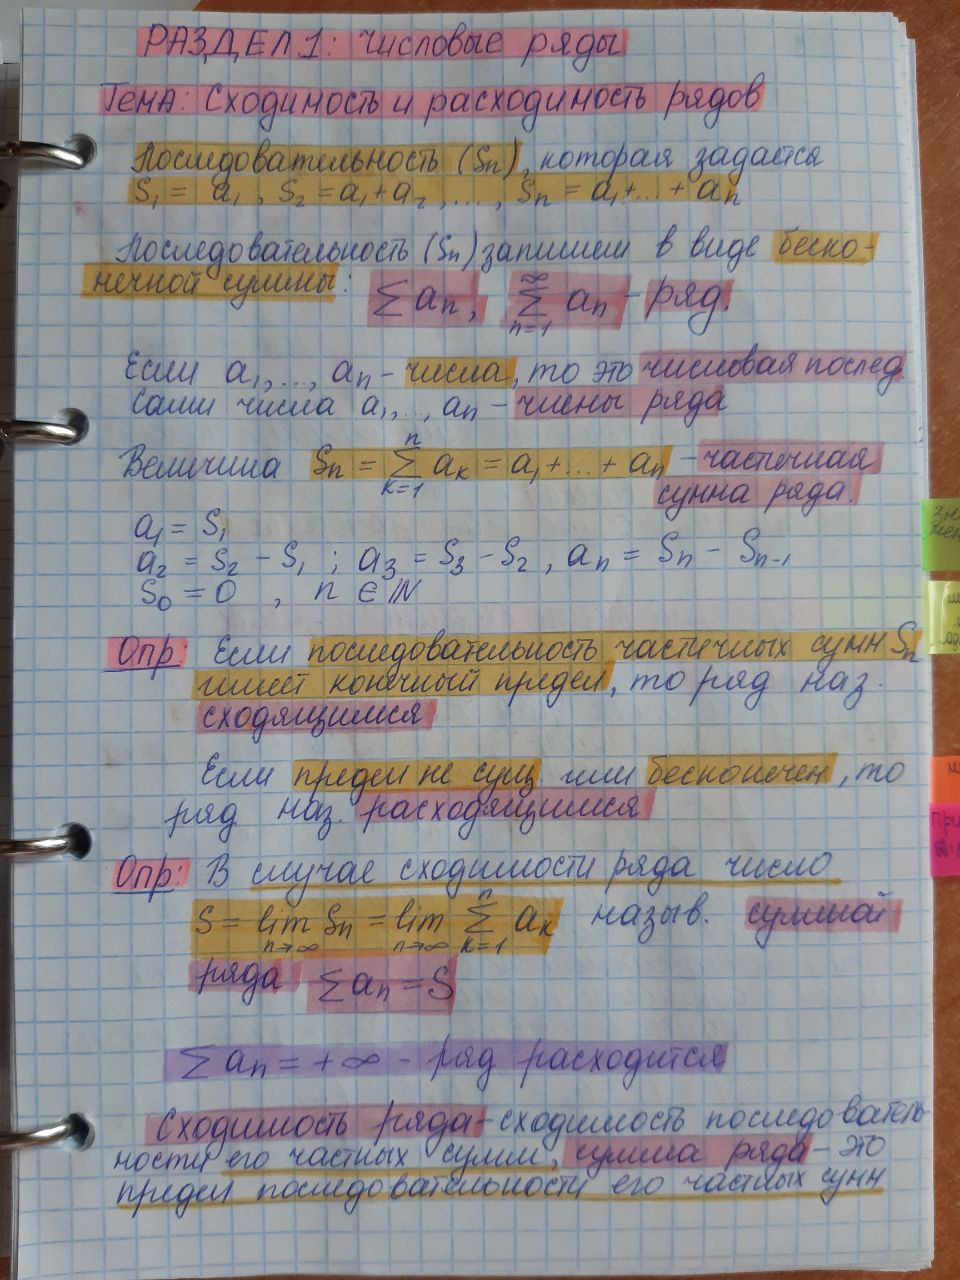 РАЗДЕЛ 1: числовые ряды
Тема: Сходимость и расходимость рядов
Последовательность (Sn), которая задается
S₁ = a₁, S₂ = a₁ + a₂, ..., Sn = a₁ + ... + an
Последовательность (Sn) запишем в виде беско-
нечной суммы: ∑ an, ∑ₙ₌₁^∞ an - ряд.
Если a₁, ..., an - числа, то это числовая послед.
Сами числа a₁, ..., an - члены ряда
Величина Sn = ∑ₖ₌₁ⁿ aₖ = a₁ + ... + an - частичная
сумма ряда.
a₁ = S₁
a₂ = S₂ - S₁ ; a₃ = S₃ - S₂, an = Sn - Sn-1
S₀ = 0 , n ∈ ℕ
Опр: Если последовательность частичных сумм Sn
имеет конечный предел, то ряд наз.
сходящимся
Если предел не сущ или бесконечен, то
ряд наз. расходящимся
Опр: В случае сходимости ряда число
S = lim n→∞ Sn = lim n→∞ ∑ₖ₌₁ⁿ aₖ назыв. суммой
ряда ∑ an = S
∑ an = + ∞ - ряд расходится
Сходимость ряда - сходимость последователь-
ности его частных сумм, сумма ряда - это
предел последовательности его частных сумм